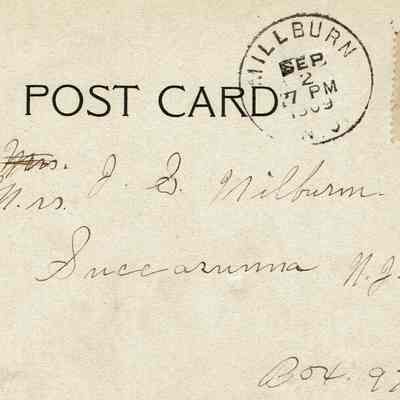 MILLBURN
SEP
2
7 PM
1909
N.J.
POST CARD
Mrs.
Mrs. J. S. Wilburn.
Succarunna N.J.
Box. 97